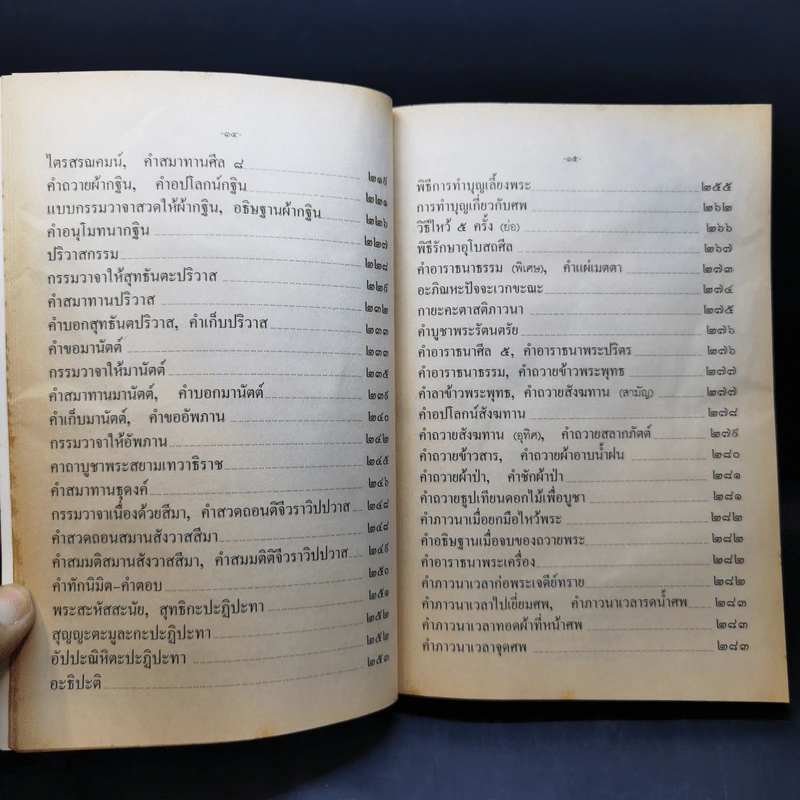 -๑๔-
ไตรสรณคมน์, คำสมาทานศีล ๘ ๒๑๙
คำถวายผ้ากฐิน, คำอปโลกน์กฐิน ๒๒๑
แบบกรรมวาจาสวดให้ผ้ากฐิน, อธิษฐานผ้ากฐิน ๒๒๖
คำอนุโมทนากฐิน ๒๒๗
ปริวาสกรรม ๒๒๘
กรรมวาจาให้สุทธันตะปริวาส ๒๒๙
คำสมาทานปริวาส ๒๓๒
คำบอกสุทธันตปริวาส, คำเก็บปริวาส ๒๓๓
คำขอมานัตต์ ๒๓๓
กรรมวาจาให้มานัตต์
คำสมาทานมานัตต์, คำบอกมานัตต์ ๒๓๙
คำเก็บมานัตต์, คำขออัพภาน ๒๔๐
กรรมวาจาให้อัพภาน ๒๔๒
คาถาบูชาพระสยามเทวาธิราช ๒๔๕
คำสมาทานธุดงค์ ๒๔๖
กรรมวาจาเนื่องด้วยสีมา, คำสวดถอนติจีวราวิปปวาส ๒๔๘
คำสวดถอนสมานสังวาสสีมา ๒๔๘
คำสมมติสมานสังวาสสีมา, คำสมมติติจีวราวิปปวาส ๒๔๙
คำทักนิมิต-คำตอบ ๒๕๐
พระสะหัสสะนัย, สุทธิกะปะฏิปะทา ๒๕๑
สุญญะตะมูละกะปะฏิปะทา ๒๕๒
อัปปะณิหิตะปะฏิปะทา ๒๕๒
อะธิปะติ ๒๕๓
-๑๕-
พิธีการทำบุญเลี้ยงพระ ๒๕๕
การทำบุญเกี่ยวกับศพ ๒๖๒
วิธีไหว้ ๕ ครั้ง (ย่อ) ๒๖๖
พิธีรักษาอุโบสถศีล ๒๖๗
คำอาราธนาธรรม (พิเศษ), คำแผ่เมตตา ๒๗๓
อะภิณหะปัจจะเวกขะณะ ๒๗๔
กายะคะตาสติภาวนา ๒๗๕
คำบูชาพระรัตนตรัย ๒๗๖
คำอาราธนาศีล ๕, คำอาราธนาพระปริตร ๒๗๖
คำอาราธนาธรรม, คำถวายข้าวพระพุทธ ๒๗๗
คำลาข้าวพระพุทธ, คำถวายสังฆทาน (สามัญ) ๒๗๗
คำอปโลกน์สังฆทาน ๒๗๘
คำถวายสังฆทาน (อุทิศ), คำถวายสลากภัตต์ ๒๗๙
คำถวายข้าวสาร, คำถวายผ้าอาบน้ำฝน ๒๘๐
คำถวายผ้าป่า, คำชักผ้าป่า ๒๘๑
คำถวายธูปเทียนดอกไม้เพื่อบูชา ๒๘๑
คำภาวนาเมื่อยกมือไหว้พระ ๒๘๒
คำอธิษฐานเมื่อจบของถวายพระ ๒๘๒
คำอาราธนาพระเครื่อง ๒๘๒
คำภาวนาเวลาก่อพระเจดีย์ทราย ๒๘๒
คำภาวนาเวลาไปเยี่ยมศพ, คำภาวนาเวลารดน้ำศพ ๒๘๓
คำภาวนาเวลาทอดผ้าที่หน้าศพ ๒๘๓
คำภาวนาเวลาจุดศพ ๒๘๓